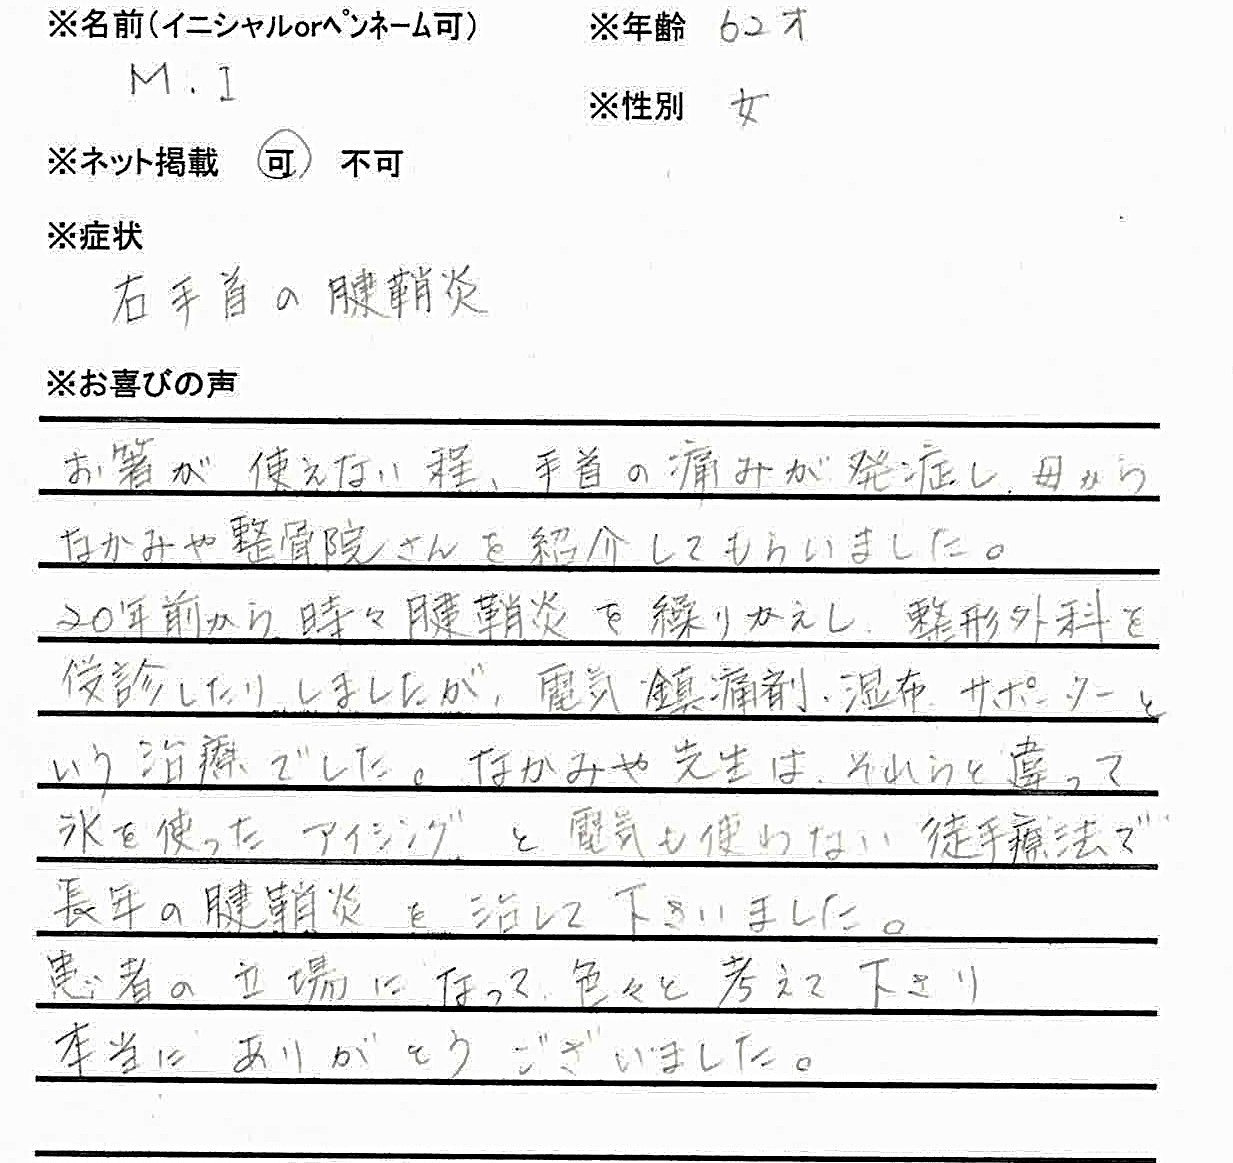 ※名前(イニシャルorペンネーム可) ※年齢 62才
M.I
※性別 女
※ネット掲載 可 不可
※症状
右手首の腱鞘炎
※お喜びの声
お箸が使えない程、手首の痛みが発症し、母から
なかみや整骨院さんを紹介してもらいました。
20年前から時々腱鞘炎を繰りかえし、整形外科を
受診したりしましたが、電気、鎮痛剤・湿布、サポーターと
いう治療でした。なかみや先生は、それらと違って
氷を使ったアイシングと電気も使わない徒手療法で
長年の腱鞘炎を治して下さいました。
患者の立場になって、色々と考えて下さり
本当にありがとうございました。